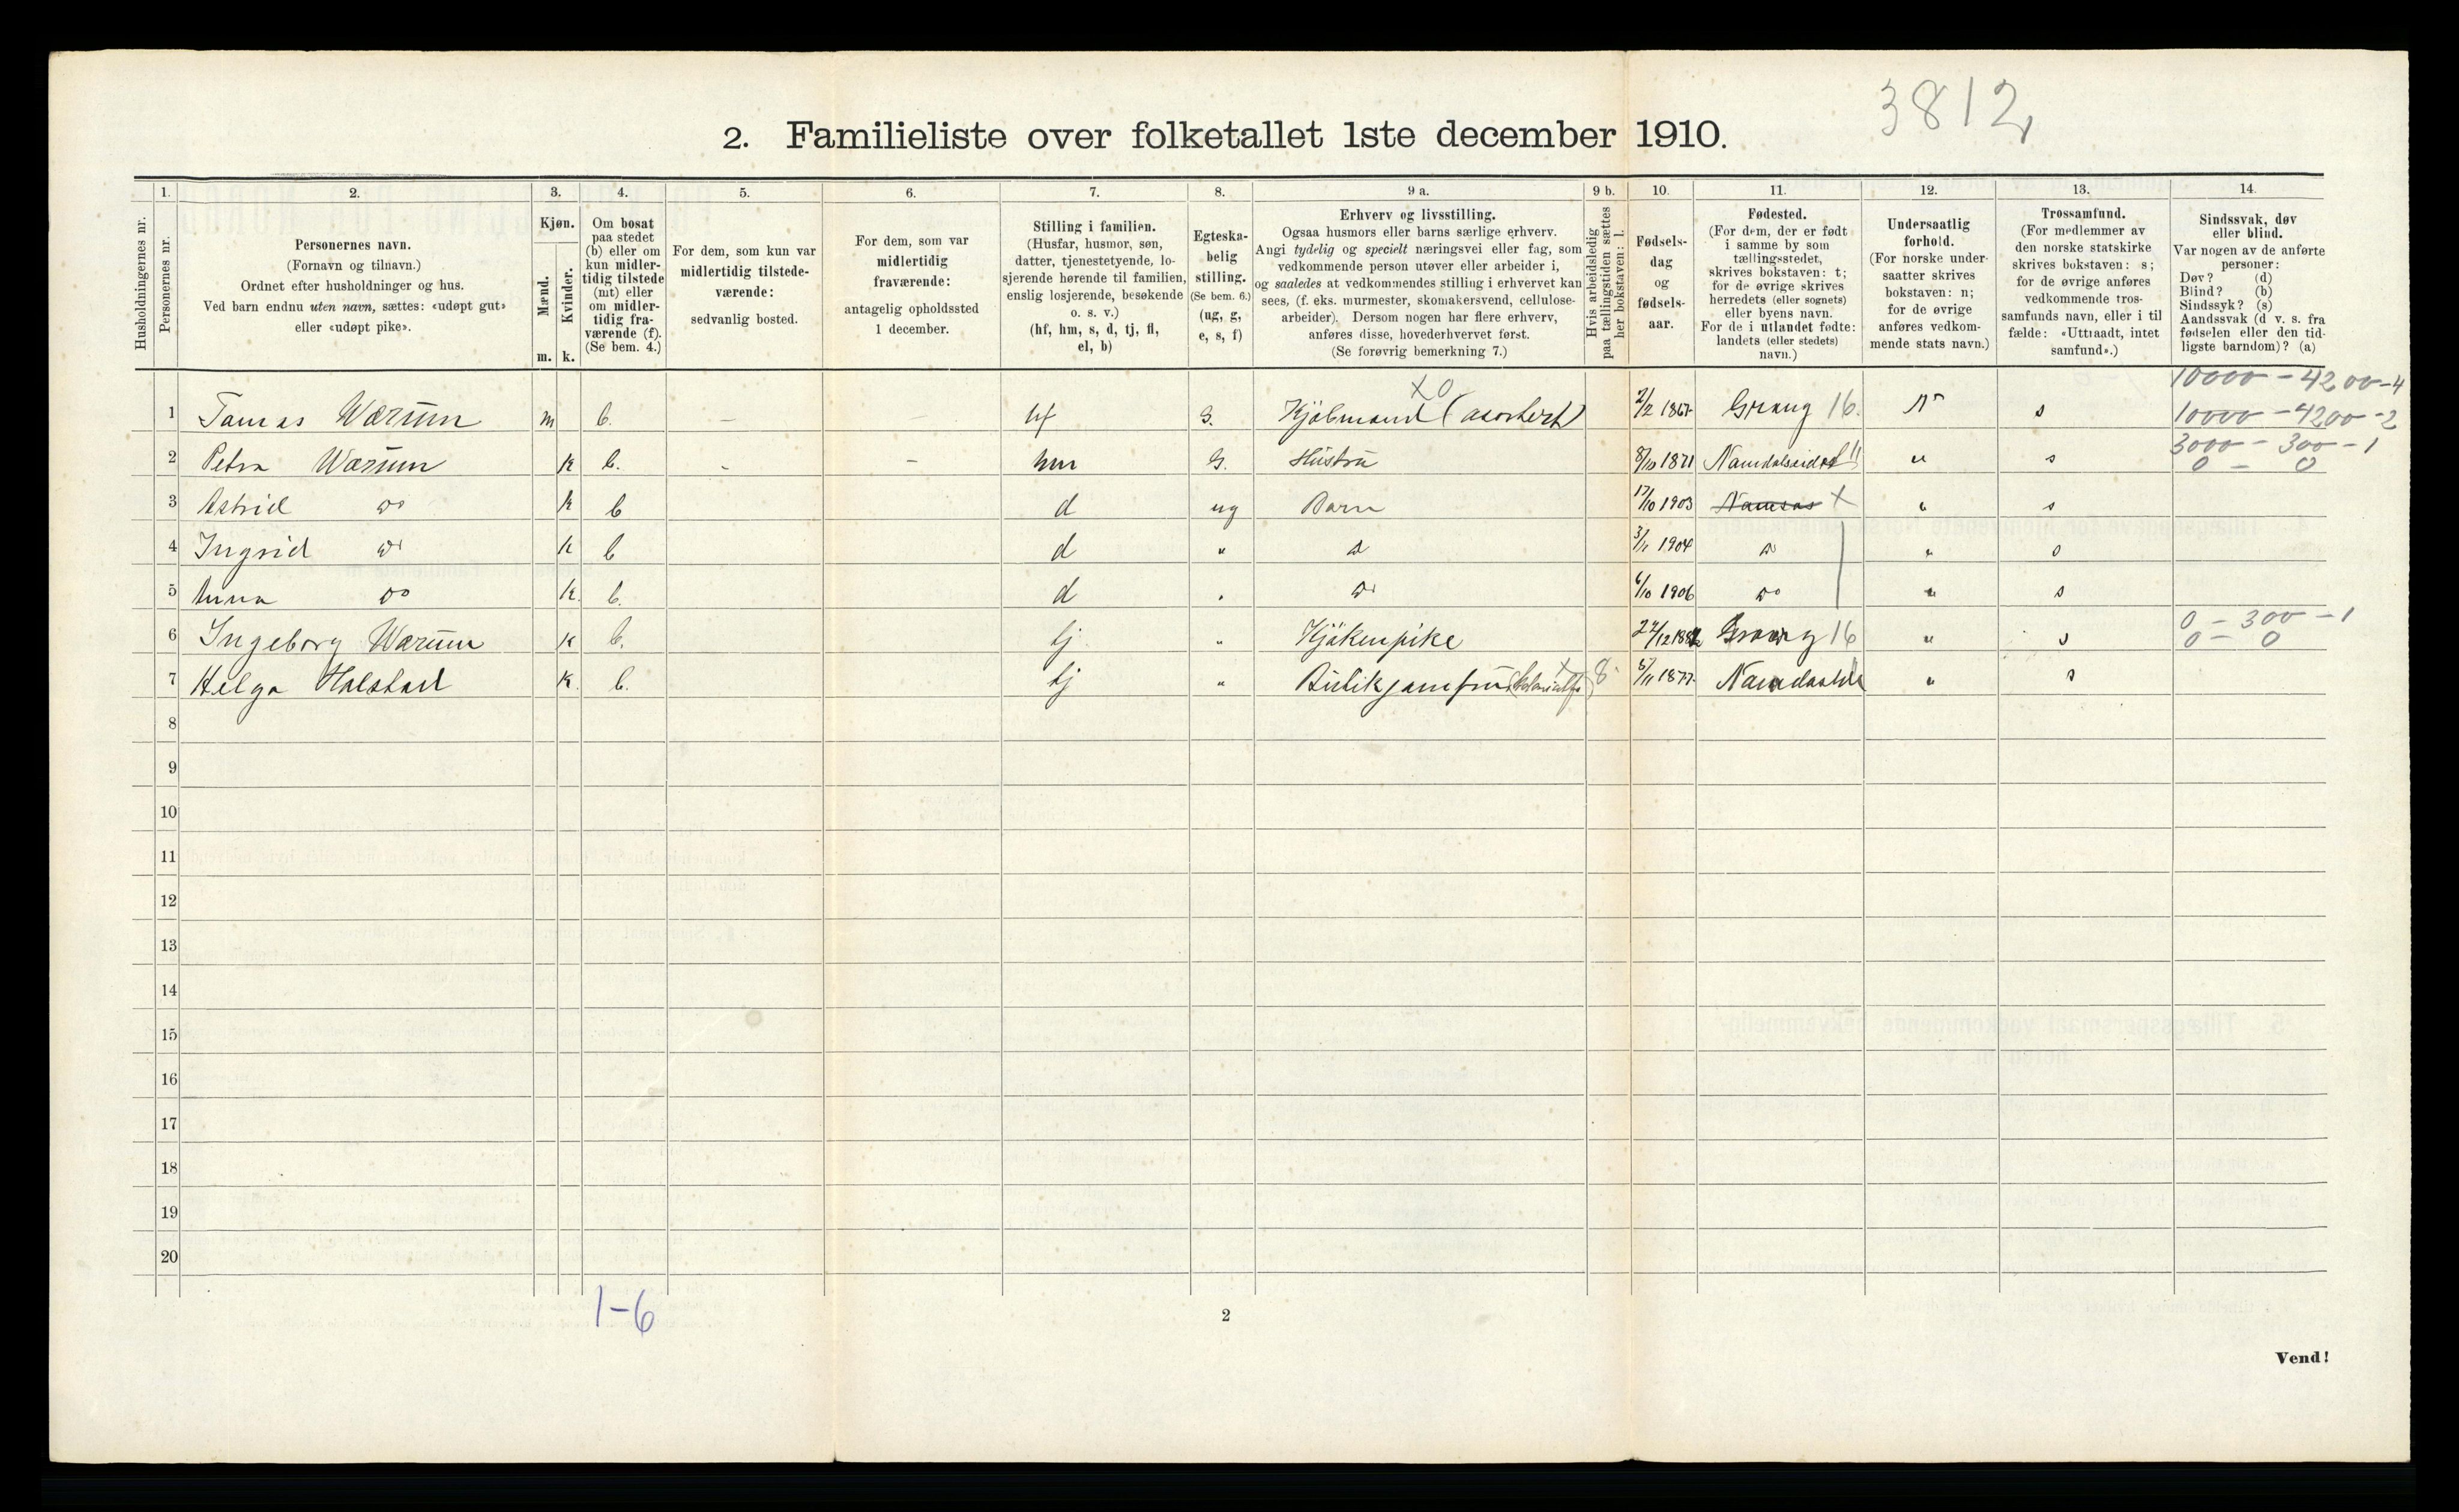 3812
2. Familieliste over folketallet 1ste december 1910.
Husholdningernes nr.
1. Personernes nr.
2. Personernes navn.
(Fornavn og tilnavn.)
Ordnet efter husholdninger og hus.
Ved barn endnu uten navn, sættes: «udøpt gut»
eller «udøpt pike».
3. Kjøn.
Mænd. m.
Kvinder. k.
4. Om bosat
paa stedet
(b) eller om
kun midler-
tidig tilstede
(mt) eller
om midler-
tidig fra-
værende (f).
(Se bem. 4.)
5. For dem, som kun var
midlertidig tilstede-
værende:
sedvanlig bosted.
6. For dem, som var
midlertidig
fraværende:
antagelig opholdssted
1 december.
7. Stilling i familien.
(Husfar, husmor, søn,
datter, tjenestetyende, lo-
sjerende hørende til familien,
enslig losjerende, besøkende
o. s. v.)
(hf, hm, s, d, tj, fl,
el, b)
8. Egteska-
belig
stilling.
(Se bem. 6.)
(ug, g,
e, s, f)
9 a. Erhverv og livsstilling.
Ogsaa husmors eller barns særlige erhverv.
Angi tydelig og specielt næringsvei eller fag, som
vedkommende person utøver eller arbeider i,
og saaledes at vedkommendes stilling i erhvervet kan
sees, (f. eks. murmester, skomakersvend, cellulose-
arbeider). Dersom nogen har flere erhverv,
anføres disse, hovederhvervet først.
(Se forøvrig bemerkning 7.)
9 b. Hvis arbeidsledig
paa tællingstiden sættes
her bokstaven: l.
10. Fødsels-
dag
og
fødsels-
aar.
11. Fødested.
(For dem, der er født
i samme by som
tællingsstedet,
skrives bokstaven: t;
for de øvrige skrives
herredets (eller sognets)
eller byens navn.
For de i utlandet fødte:
landets (eller stedets)
navn.)
12. Undersaatlig
forhold.
(For norske under-
saatter skrives
bokstaven: n;
for de øvrige
anføres vedkom-
mende stats navn.)
13. Trossamfund.
(For medlemmer av
den norske statskirke
skrives bokstaven: s;
for de øvrige anføres
vedkommende tros-
samfunds navn, eller i til
fælde: «Uttraadt, intet
samfund».)
14. Sindssvak, døv
eller blind.
Var nogen av de anførte
personer:
Døv? (d)
Blind? (b)
Sindssyk? (s)
Aandssvak (d v. s. fra
fødselen eller den tid-
ligste barndom)? (a)
10000 - 4200 - 4
XO
1 Tomas Wærum m b. - hf G. Kjøbmand (assortert) 2/2 1867 Grong 16. N s 10000 - 4200 - 2
3000 - 300 - 1
2 Petra Wærum K b. - - hm G. Hustru 8/10 1871 Namdalseidet 11 " s 0 - 0
3 Astrid do k b d ug Barn 17/10 1903 Namsos X " s
4 Ingrid do k b d " do 3/11 1904 do " s
5 Anna do K. b. d " do 6/10 1906 do " s
0 - 300 - 1
6 Ingeborg Wærum K b. tj " Kjøkenpike 24/12 1882 Grong 16 " s 0 - 0
7 Helga Halstad K. b. tj " Butikjomfru 8 5/11 1877 " s
8
9
10
11
12
13
14
15
16
17
18
19
20
1-6
2
Vend!